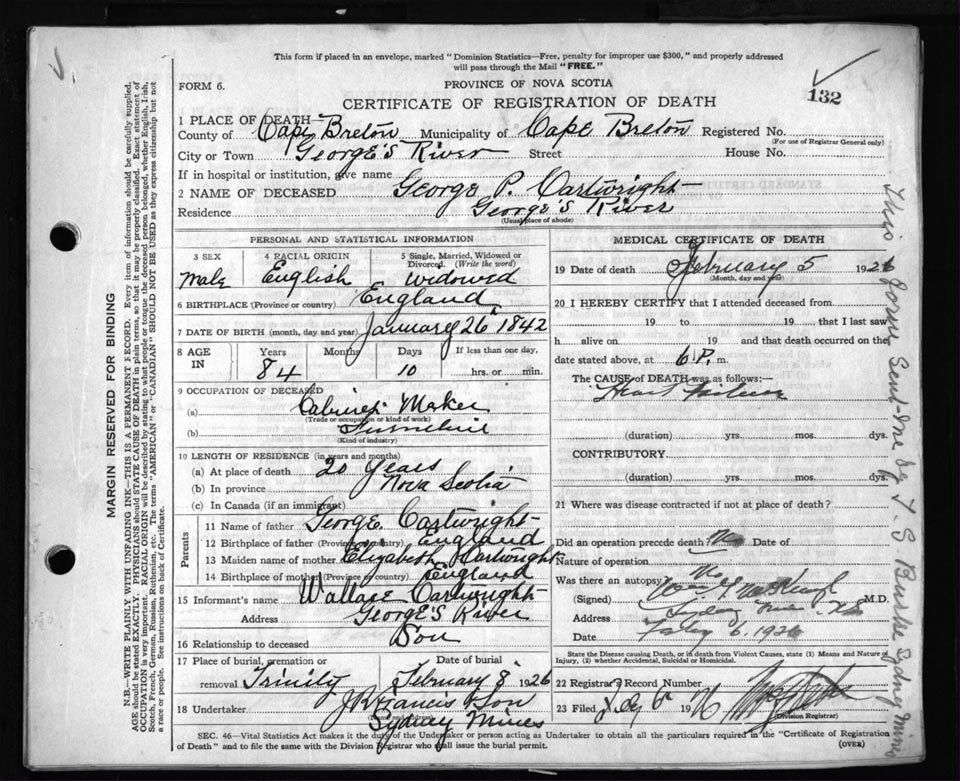 This form if placed in an envelope, marked "Dominion Statistics—Free, penalty for improper use $300," and properly addressed
will pass through the Mail "FREE."
132
FORM 6.
PROVINCE OF NOVA SCOTIA
CERTIFICATE OF REGISTRATION OF DEATH
1 PLACE OF DEATH—
County of Cape Breton Municipality of Cape Breton Registered No.
(For use of Registrar General only)
City or Town George's River Street House No.
If in hospital or institution, give name
2 NAME OF DECEASED George P. Cartwright
Residence George's River
(Usual place of abode)
PERSONAL AND STATISTICAL INFORMATION
3 SEX 4 RACIAL ORIGIN 5 Single, Married, Widowed or
Divorced. (Write the word)
Male English Widowed
6 BIRTHPLACE (Province or country) England
7 DATE OF BIRTH (month, day and year) January 26 1842
8 AGE IN Years Months Days If less than one day,
84 10 hrs. or min.
9 OCCUPATION OF DECEASED
(a) Cabinet Maker
(Trade or occupation or kind of work)
(b) Furniture
(Kind of industry)
10 LENGTH OF RESIDENCE (in years and months)
(a) At place of death 20 years
(b) In province Nova Scotia
(c) In Canada (if an immigrant)
Parents
11 Name of father George Cartwright
12 Birthplace of father (Province or country) England
13 Maiden name of mother Elizabeth Cartwright
14 Birthplace of mother (Province or country) England
15 Informant's name Wallace Cartwright
Address George's River
16 Relationship to deceased Son
17 Place of burial, cremation or Date of burial
removal Trinity February 8 1926
18 Undertaker J R Francis & Son
Sydney Mines
MEDICAL CERTIFICATE OF DEATH
19 Date of death February 5 1926
(Month, day and year)
20 I HEREBY CERTIFY that I attended deceased from
19 to 19 that I last saw
h alive on 19 and that death occurred on the
date stated above, at 6 P. m.
The CAUSE of DEATH was as follows:—
Heart Failure
(duration) yrs. mos. dys.
CONTRIBUTORY
(duration) yrs. mos. dys.
21 Where was disease contracted if not at place of death?
Did an operation precede death? No Date of
Nature of operation
Was there an autopsy No
(Signed) M.D.
Address Sydney Mines N.S.
Date Feby 6. 1926
State the Disease causing Death, or in death from Violent Causes, state (1) Means and Nature of
Injury, (2) whether Accidental, Suicidal or Homicidal.
22 Registrar's Record Number
23 Filed Feby 6 1926
(Division Registrar)
SEC. 46—Vital Statistics Act makes it the duty of the Undertaker or person acting as Undertaker to obtain all the particulars required in the "Certificate of Registration
of Death" and to file the same with the Division Registrar who shall issue the burial permit.
(OVER)
MARGIN RESERVED FOR BINDING
N.B.—WRITE PLAINLY WITH UNFADING INK—THIS IS A PERMANENT RECORD. Every item of information should be carefully supplied.
AGE should be stated EXACTLY. PHYSICIANS should STATE CAUSE OF DEATH in plain terms, so that it may be properly classified. Exact statement of
OCCUPATION is very important. RACIAL ORIGIN will be described by stating to what people or tongue the deceased person belonged, whether English, Irish,
Scotch, French, German, Russian, Ruthenian, etc. The terms "AMERICAN" or "CANADIAN" SHOULD NOT BE USED as they express citizenship but not
a race or people. See instructions on back of Certificate.
This form Sent me by Burke Sydney Mines